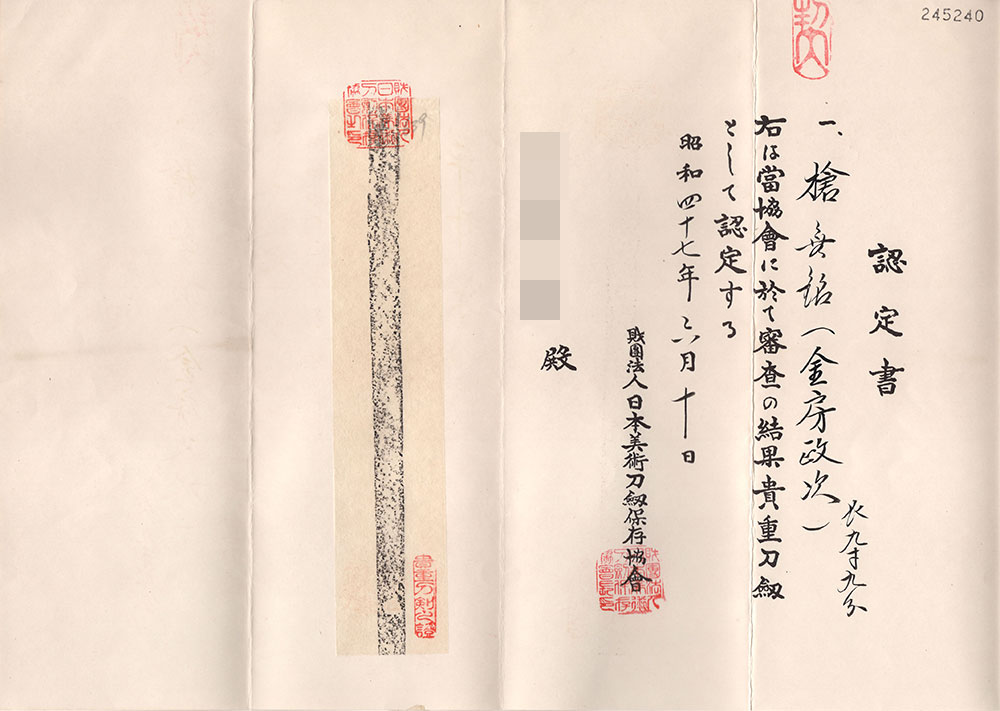 245240
認定書
一、槍 無銘(金房政次)
長九寸九分
右は當協會に於て審査の結果貴重刀劔
として認定する
昭和四十七年六月十日
財團法人日本美術刀劔保存協會
殿
貴重刀剣之證